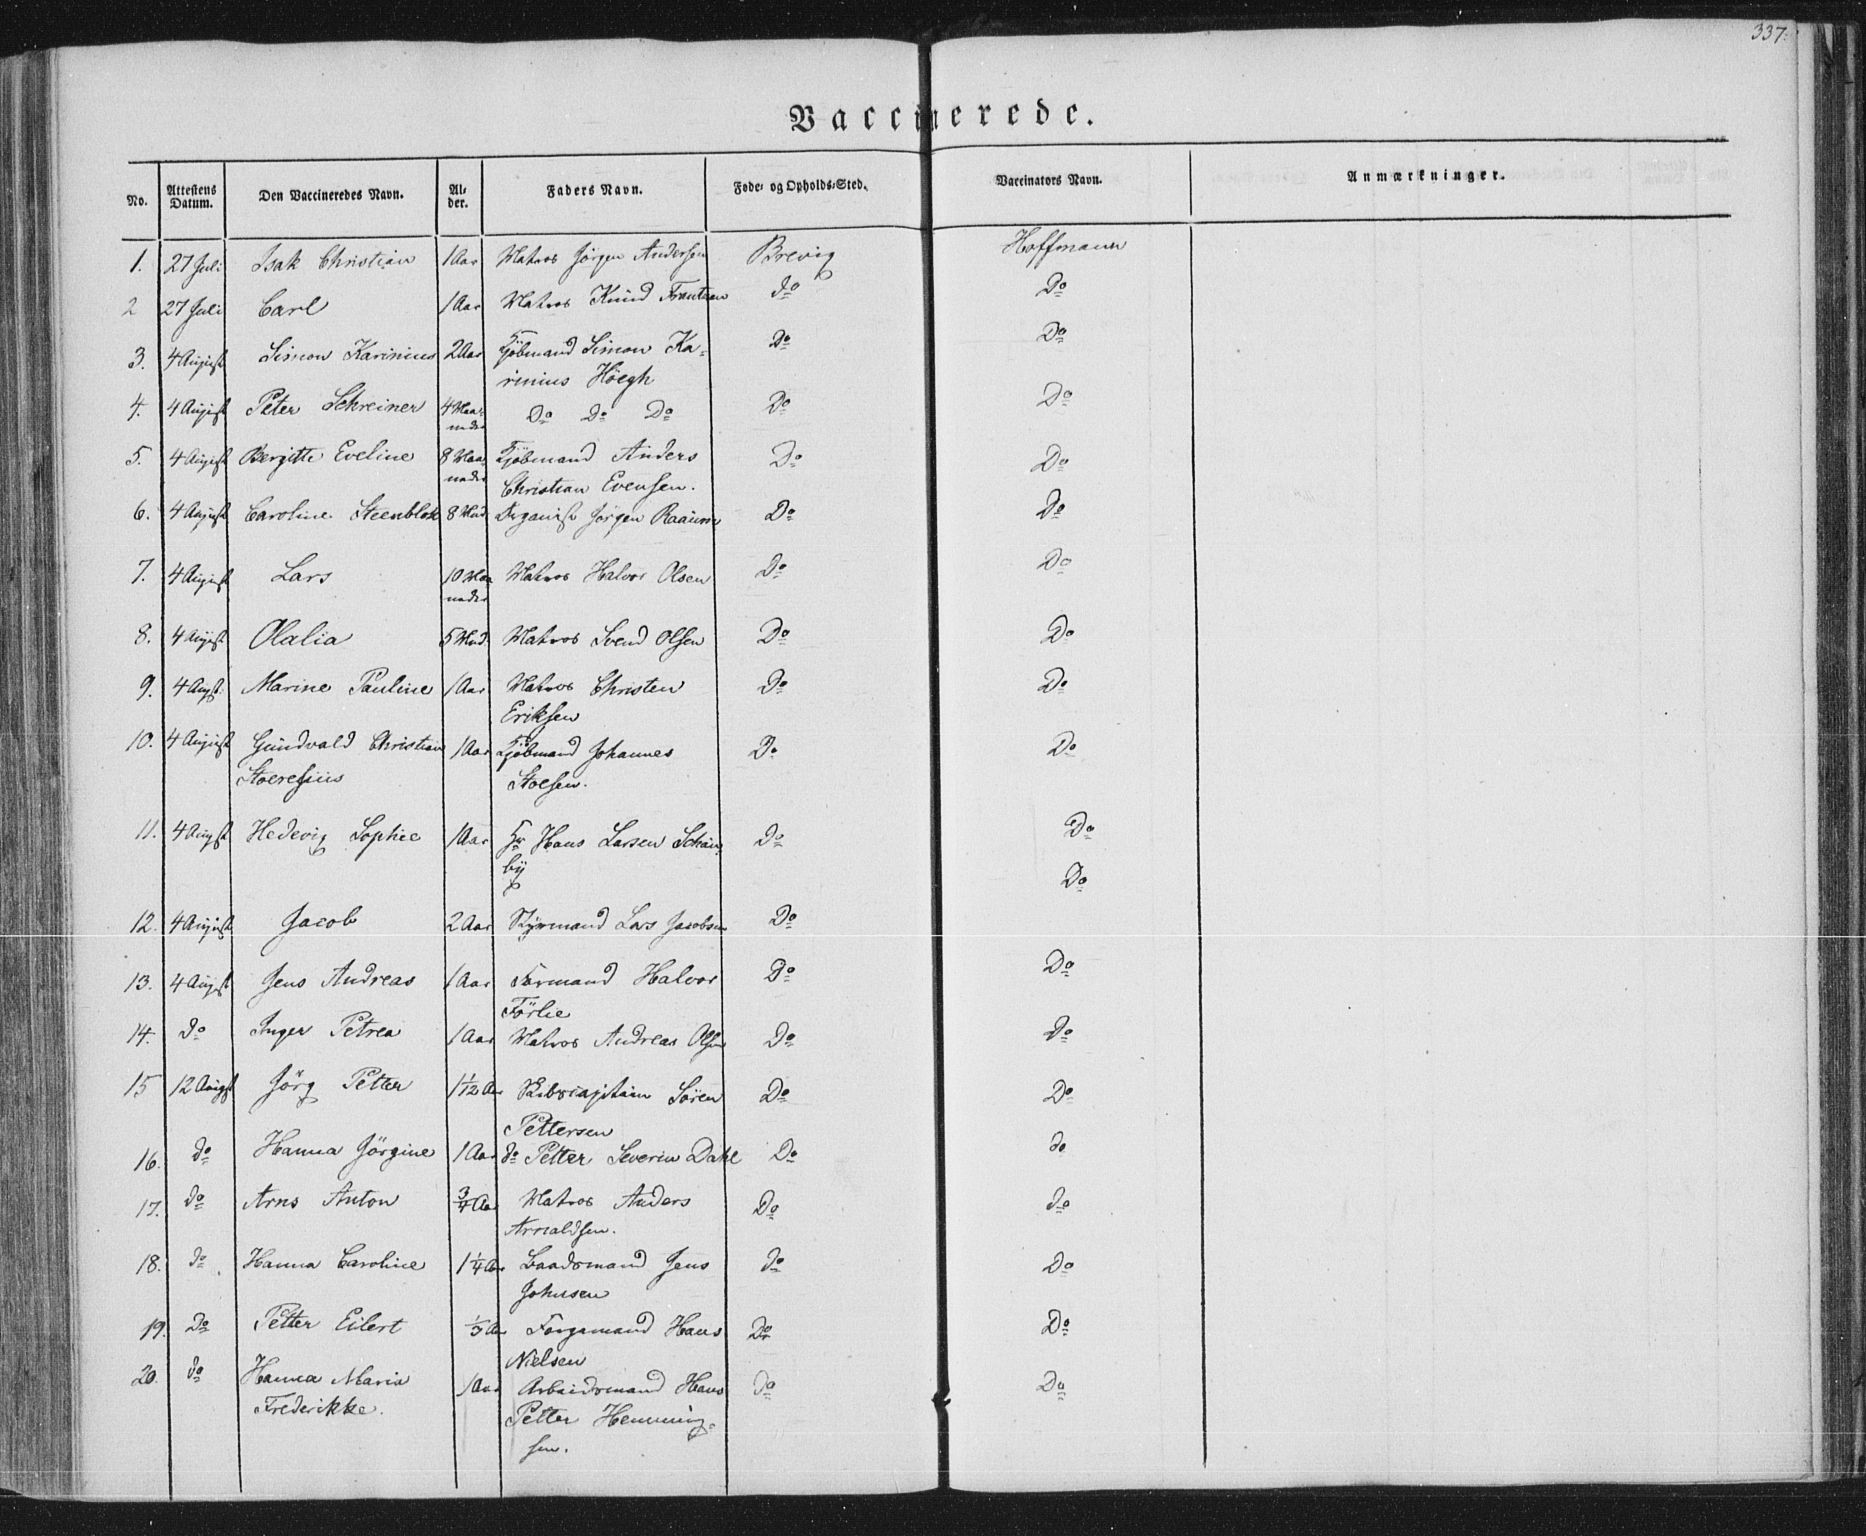 337.
Vaccinerede.
No. Attestens Datum. Den Vaccineredes Navn. Alder. Faders Navn. Føde- og Opholds-Sted. Vaccinators Navn. Anmærkninger.
1. 27 Juli Isak Christian 1 Aar Matros Jörgen Andersen Brevig Hoffmann
2 27 Juli Carl 1 Aar Matros Knud Frantsen do Do
3. 4 August Simon Karinius 2 Aar Kjöbmand Simon Ka-
rinius Höegh Do Do
4. 4 August Peter Schreiner 4 Maa-
neder Do Do Do Do Do
5. 4 August Bergitte Eveline 8 Maa-
neder Kjöbmand Anders
Christian Evensen. Do Do
6. 4 August Caroline Steenblok 8 Mnd Organist Jörgen Raaum Do Do
7. 4 August Lars 10 Maa
neder Matros Halvor Olsen Do Do
8. 4 August Olalia 5 Mnd. Matros Svend Olsen Do Do
9. 4 Augst. Marine Pauline 1 Aar Matros Christen
Eriksen Do Do
10. 4 August Gundvald Christian
1 Aar Kjöbmand Johannes
Stoesen. Do Do
11. 4 Augst Hedevig Sophie 1 Aar Hr Hans Larsen
by do Do
Do
12. 4 August Jacob 2 Aar Styrmand Lars Jacobsen Do
13. 4 August Jens Andreas 1 Aar Formand Halvor
Förlie Do Do
14. Do Inger Petrea 1 Aar Matros Andreas Olsen Do Do
15 12 Augst Jörg Petter 1 1/2 Aar Skibscapitain Sören
Pettersen Do Do
16. do Hanna Jörgine 1 Aar do Petter Severin Dahl Do do
17. do Arns Anton 3/4 Aar Matros Anders
Arnaldsen. Do do
18. do Hanna Caroline 1 1/4 Aar Baadsmand Jens
Johnsen do Do
19. Do Petter Eilert Hans
Nielsen Do Do
20. do Hanna Maria
Frederikke. 1 Aar Arbeidsmand Hans
Petter Hemming-
sen. do Do